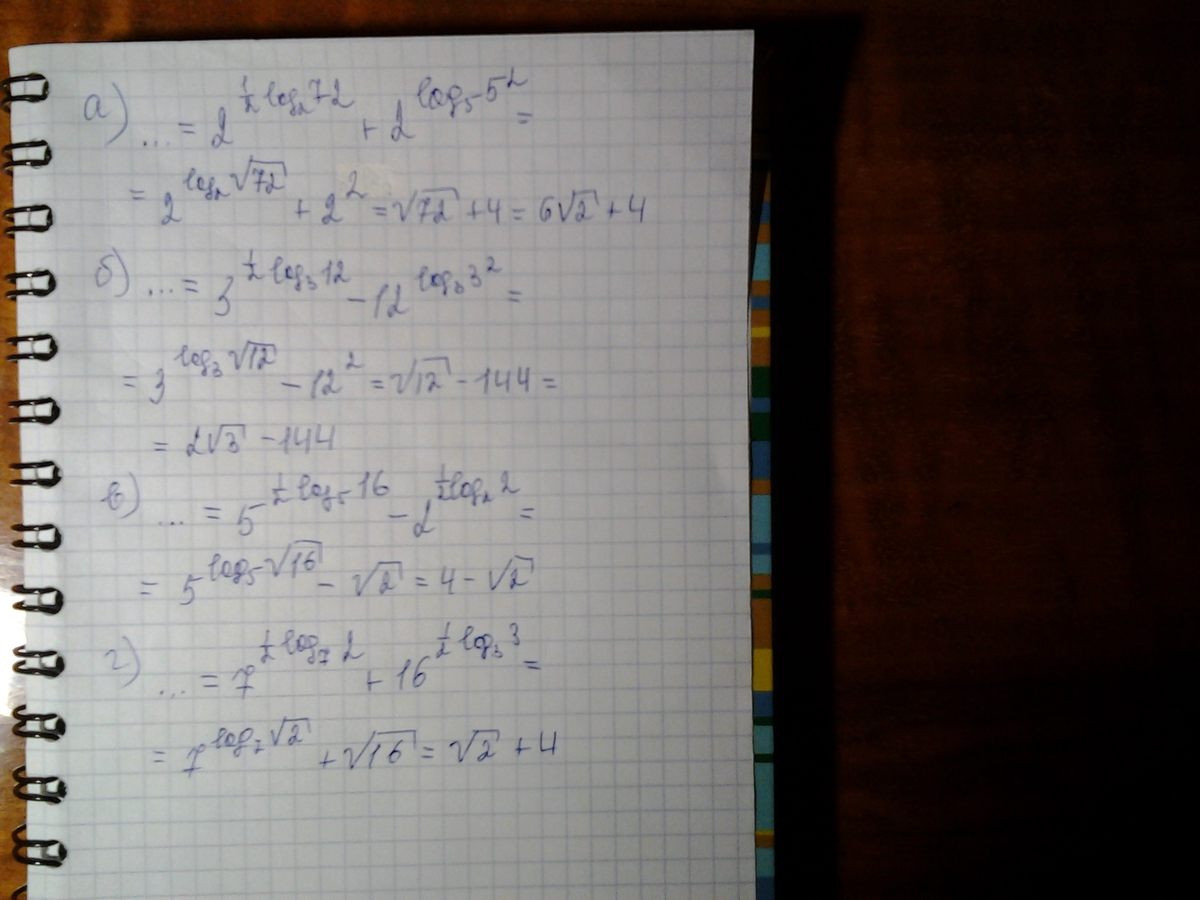 а) ... = 2^{\frac{1}{2}\log_2 72} + 2^{\log_5 5^2} =
= 2^{\log_2 \sqrt{72}} + 2^2 = \sqrt{72} + 4 = 6\sqrt{2} + 4
б) ... = 3^{\frac{1}{2}\log_3 12} - 12^{\log_3 3^2} =
= 3^{\log_3 \sqrt{12}} - 12^2 = \sqrt{12} - 144 =
= 2\sqrt{3} - 144
в) ... = 5^{\frac{1}{2}\log_5 16} - 2^{\frac{1}{2}\log_2 2} =
= 5^{\log_5 \sqrt{16}} - \sqrt{2} = 4 - \sqrt{2}
г) ... = 7^{\frac{1}{2}\log_7 2} + 16^{\frac{1}{2}\log_3 3} =
= 7^{\log_7 \sqrt{2}} + \sqrt{16} = \sqrt{2} + 4